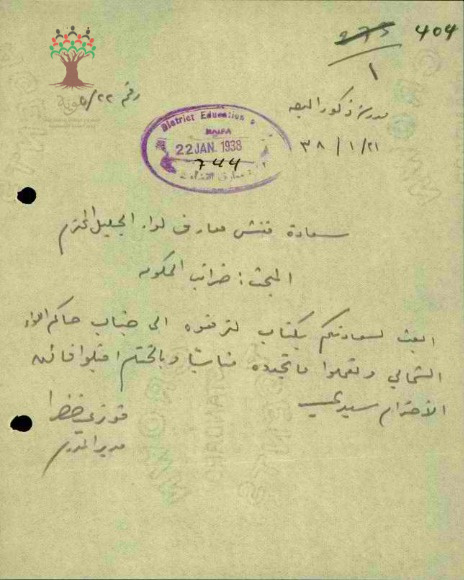 404
275
1
رقم ٢٢/٥
مدرسة ذكور البصه
٣٨/١/٢١
District Education
HAIFA
22 JAN. 1938
744
سعادة مفتش معارف لواء الجليل المحترم
المبحث : ضرائب الحكومه
ابعث لسعادتكم بكتاب لترفعوه الى جناب حاكم اللواء
الشمالي وتعملوا ما تجدوه مناسبا وبالختام اقبلوا فائق
الاحترام سيدي
فوزي خضرا
مدير المدرسة